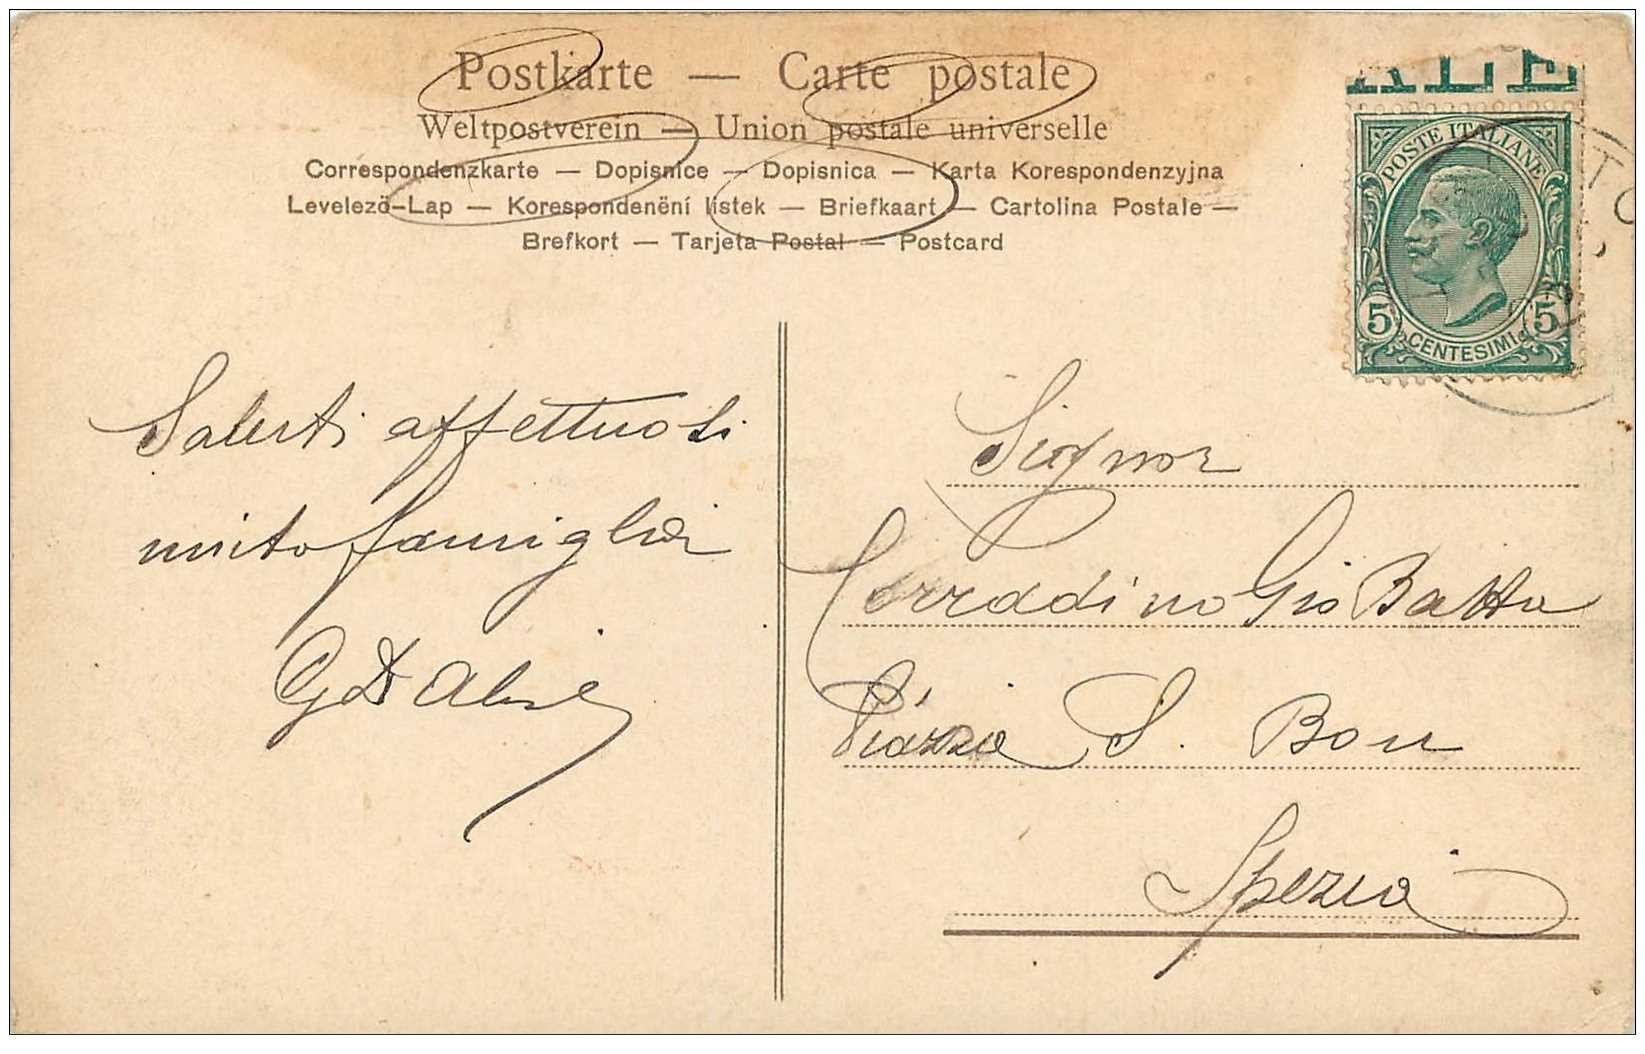 Postkarte — Carte postale
Weltpostverein — Union postale universelle
Correspondenzkarte — Dopisnice — Dopisnica — Karta Korespondenzyjna
Levelező-Lap — Korespondenění lístek — Briefkaart — Cartolina Postale —
Brefkort — Tarjeta Postal — Postcard
POSTE ITALIANE
5 CENTESIMI 5
Saluti affettuosi
unito famiglia
Signor
Corradino Gio Batta
Piazza S. Bon
Spezia